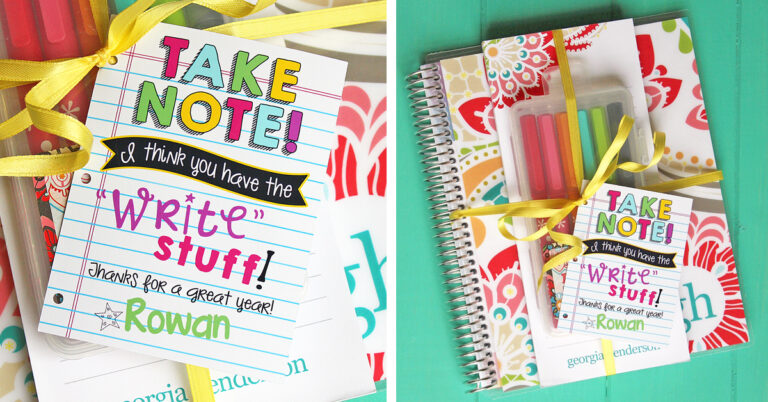 TAKE
NOTE!
I think you have the
"Write"
stuff!
Thanks for a great year!
Rowan
georgia henderson
TAKE
NOTE!
I think you have the
"Write"
stuff!
Thanks for a great year!
Rowan
gh
georgia henderson